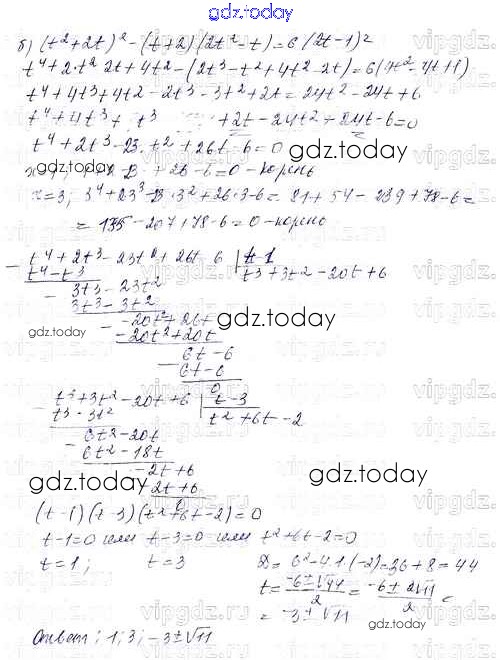 gdz.today
б) (t²+2t)²-(t+2)(2t²-t)=6(2t-1)²
t⁴+2·t²·2t+4t²-(2t³-t²+4t²-2t)=6(4t²-4t+1)
t⁴+4t³+4t²-2t³-3t²+2t=24t²-24t+6
t⁴+4t³ t³ +2t-24t²+24t-6=0
t⁴+2t³-23t²+26t-6=0
gdz.today
+26-6=0-корень
x=3; 3⁴+2·3³-23·3²+26·3-6=81+54-239+78-6=
=135-207+78-6=0-корень
t⁴+2t³-23t²+26t-6 | t-1
t⁴-t³ t³+3t²-20t+6
3t³-23t²
3t³-3t²
gdz.today
-20t²+26t
gdz.today
-20t²+20t
6t-6
6t-6
0
t³+3t²-20t+6 | t-3
t³-3t² t²+6t-2
6t²-20t
6t²-18t
-2t+6
gdz.today
2t+6
gdz.today
0
(t-1)(t-3)(t²+6t-2)=0
t-1=0 или t-3=0 или t²+6t-2=0
t=1; t=3 D=6²-4·1·(-2)=36+8=44
t=(-6±√44)/2=(-6±2√11)/2=
=-3±√11
gdz.today
Ответ: 1; 3; -3±√11
gdz.today